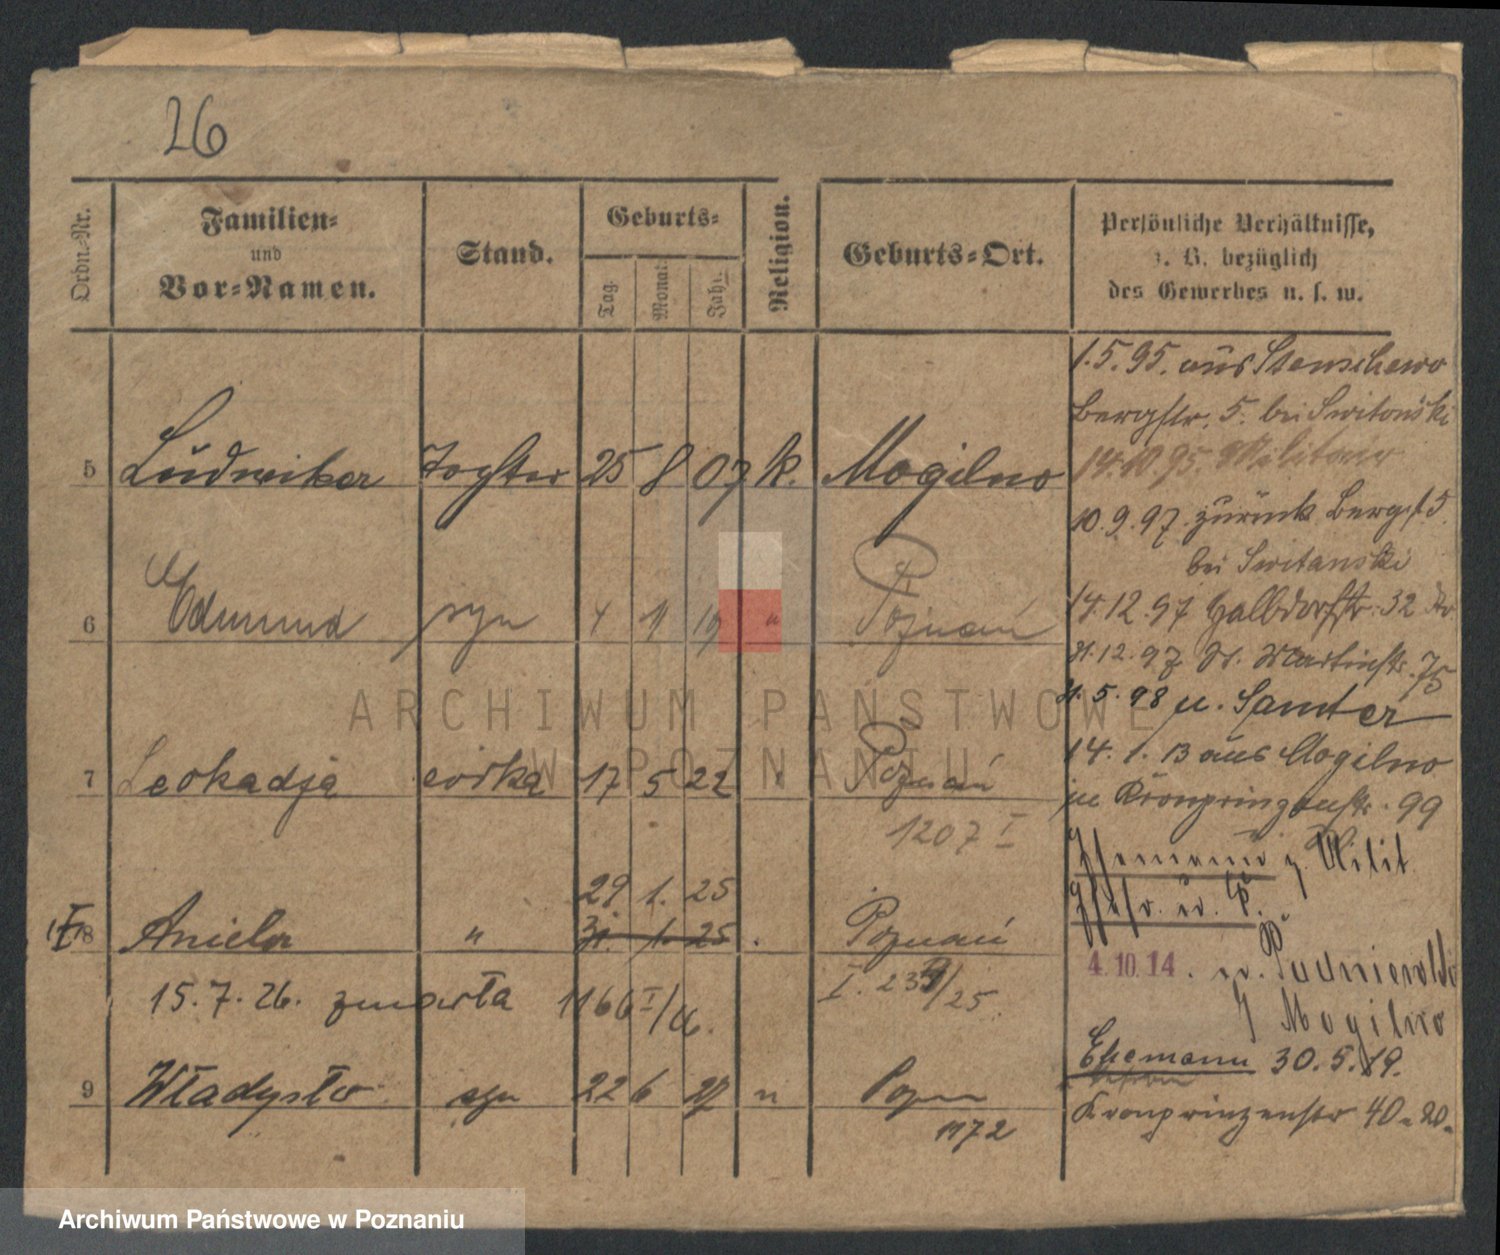 26
Ordn.-Nr.
Familien-
und
Vor-Namen.
Stand.
Geburts-
Tag.
Monat
Jahr.
Religion.
Geburts-Ort.
Persönliche Verhältnisse,
z. B. bezüglich
des Gewerbes u. s. w.
5 Ludwika Tochter 25 8 07 k. Mogilno
6 Edmund syn 4 11 19 " Poznań
7 Leokadja córka 17 5 22 " Poznań
1207 I
29 1. 25
8 Aniela " 31. 1. 25 Poznań
15.7.26. zmarła 1166 I/26. I. 239/25
9 Władysław syn 22 6 27 " Pozn
1172
1.5.95. aus Stenschewo
Bergstr. 5. bei Switonski
14.10.95 Militair
10.9.97. zurück Bergst 5.
bei Switanski
14.12.97 Halbdorfstr. 32
31.12.97 St. Martinstr. 75
31.5.98 n. Samter
14.1.13 aus Mogilno
in Kronprinzenstr. 99
Ehemann z. Milit
Ehefr. u. K.
4.10.14. Pudniewski
Mogilno
Ehemann 30.5.19.
Kronprinzenstr 40
ARCHIWUM PAŃSTWOWE
W POZNANIU
Archiwum Państwowe w Poznaniu